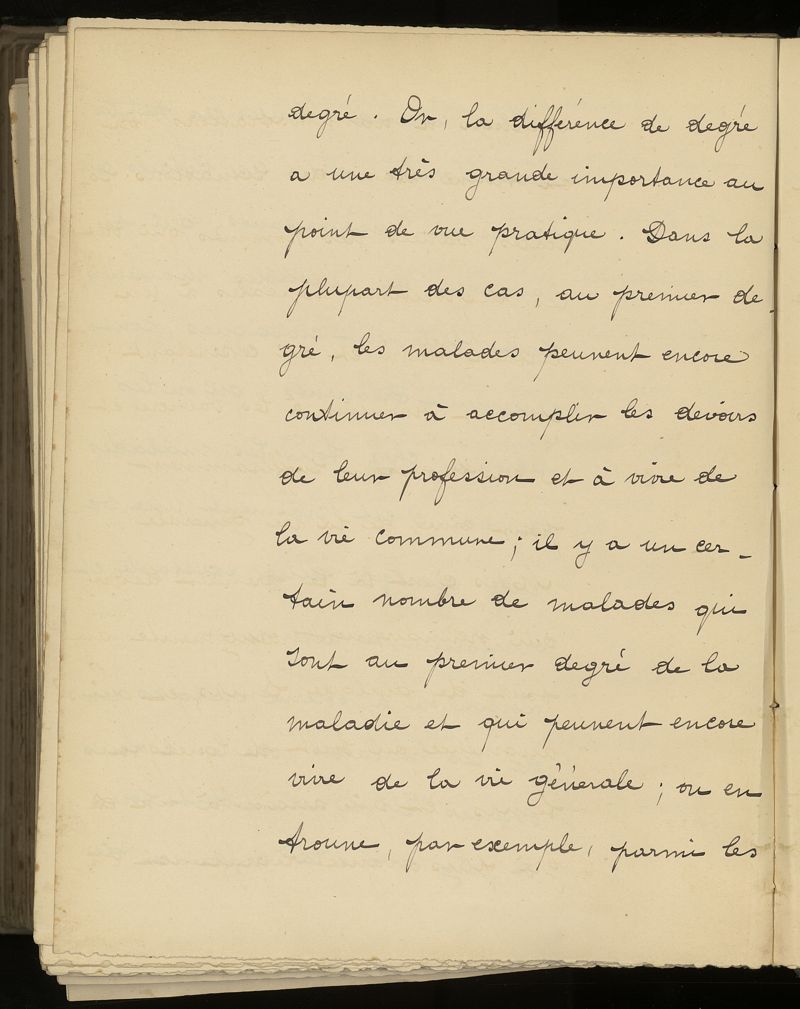 degré. Or, la différence de degré
a une très grande importance au
point de vue pratique. Dans la
plupart des cas, au premier de
gré, les malades peuvent encore
continuer à accomplir les devoirs
de leur profession et à vivre de
la vie commune; il y a un cer-
tain nombre de malades qui
sont au premier degré de la
maladie et qui peuvent encore
vivre de la vie générale; on en
trouve, par exemple, parmi les